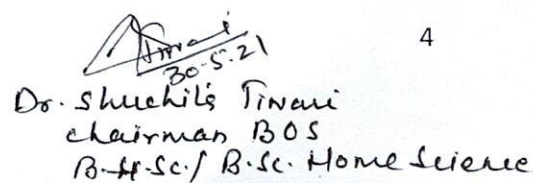 Tiwari
30-5-21
4
Dr. Shuchita Tiwari
Chairman BOS
B.H.Sc./ B.Sc. Home Science